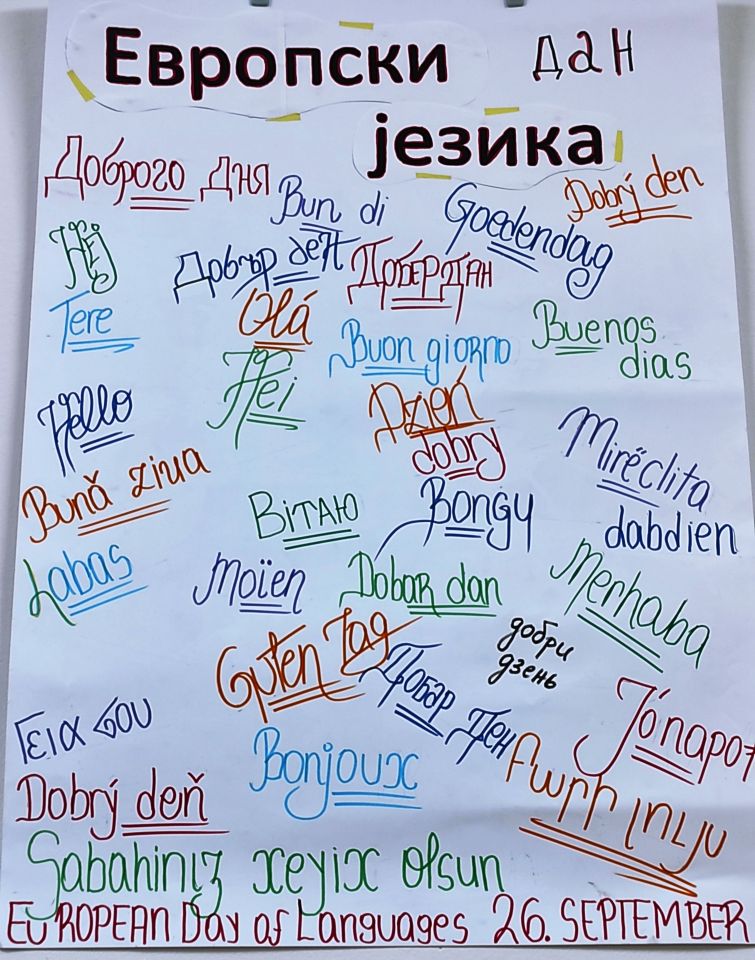 Европски дан
језика
Доброго дня
Bun di
Goedendag
Dobrý den
Hej
Добър ден
Добердан
Tere
Olá
Buon giorno
Buenos
dias
Hei
Hello
Dzień
dobry
Mirëclita
Bună ziua
Вiтаю
Bongu
dabdien
Labas
Moïen
Dobar dan
Merhaba
Guten Tag
добри
дзень
Добар Ден
Γεια σου
Jónapot
Bonjour
Dobrý deň
Բարի լույս
Sabahiniz xeyix olsun
European Day of Languages 26. SEPTEMBER